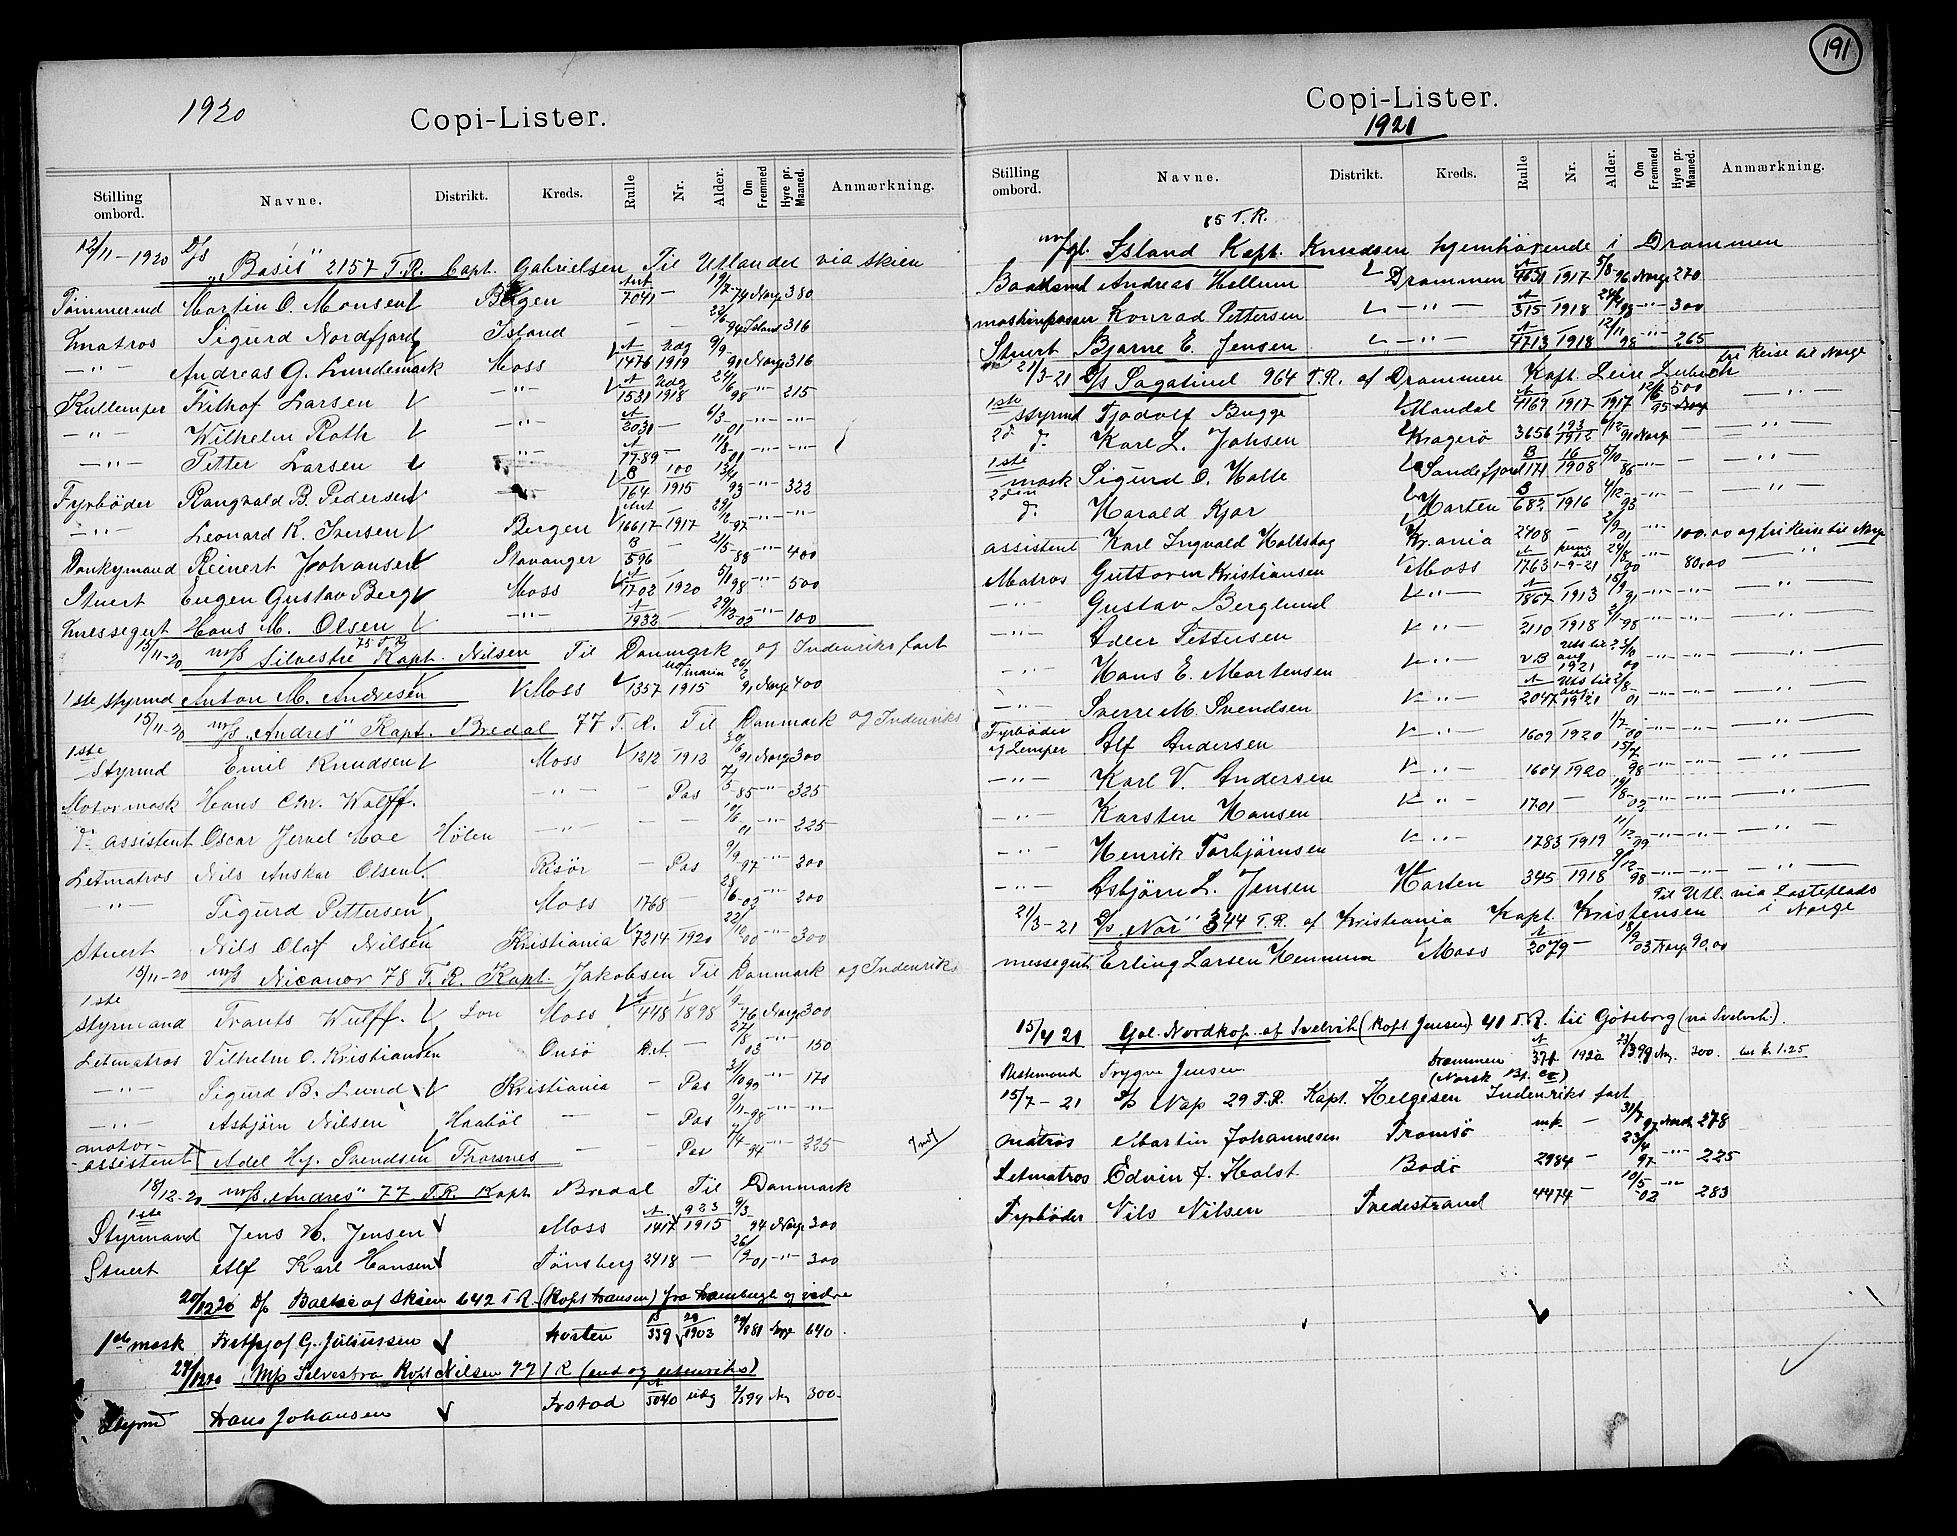 1920
Copi-Lister.
Stilling ombord. Navne. Distrikt. Kreds. Rulle Nr. Alder. Om Fremmed Hyre pr. Maaned. Anmærkning.
12/11-1920 D/S "Basis" 2157 T.R. Capt. Gabrielsen Til Utlandet via Skien
Tømmermd Martin O. Monsen Bergen 7041 — 19/7-74 Norge 380
Matros Sigurd Nordfjord Island — — 94 Island 316
—"— Andreas G. Lundemark Moss A 1476 1919 9/9-91 Norge 316
Kullemper Frithof Larsen —"— A 1531 1918 98 —"— 215
—"— Wilhelm Roth —"— A 2031 — 6/3 01 —"— —"—
—"— Petter Larsen —"— A 1789 — 11/8 01 —"— —"—
Fyrbøder Rangvald B. Pedersen —"— B 164 100 1915 93 —"— 322
—"— Leonard K. Iversen Bergen 16617 1917 29/12-97 —"— —"—
Donkymand Reinert Johansen Stavanger B 596 — 21/5-88 —"— 400
Stuert Eugen Gustav Berg Moss A 1702 1920 5/1 98 —"— 500
Messegut Hans M. Olsen —"— A 1932 — 02 —"— 100
15/11-20 M/S Silvestre 75 T.R. Kapt. Nilsen Til Danmark og Indenriks fart
1ste styrmd Anton M. Andresen Moss 1357 1915 91 Norge 400
15/11-20 M/S "Andres" Kapt. Bredal 77 T.R. Til Danmark og Indenriks
1ste Styrmd Emil Knudsen Moss 1212 1913 91 Norge 300
Motormask Hans Chr. Wolff. —"— — Pas 85 —"— 325
d. assistent Oscar Jervel Moe Hølen —"— — — 10/6 01 —"— 225
Letmatros Nils Anskar Olsen Risör — Pas 9/9-97 —"— 300
—"— Sigurd Pettersen Moss 1768 — 28/6-02 —"— 200
Stuert Nils Olaf Nilsen Kristiania 7214 1920 22/10 00 —"— 300
15/11-20 M/S Nicanor 78 T.R. Kapt. Jakobsen Til Danmark og Indenriks
1ste Styrmand Frants Wulff. Son Moss A 448 1898 76 Norge 300
Letmatros Vilhelm O. Kristiansen Onsö — 03 —"— 150
—"— Sigurd B. Lund Kristiania — Pas 99 —"— 170
—"— Asbjørn Nilsen Haabøl — Pas 9/11-98 —"— —"—
motor-assistent Adel Hj. Svendsen Thorsnes — Pas 94 —"— 225
18/12-20 M/S "Andres" 77 T.R. Kapt Bredal Til Danmark
1ste Styrmand Jens H. Jensen Moss A 1417 923 1915 9/3 94 Norge 300
Stuert Alf Karl Hansen Tönsberg 2418 — 26/9-01 —"— 300
20/12 20 D/S Baltic af Skien 642 T.R. (Kapt Hansen) fra Hamburgh og videre
1ste mask Fritjof G. Juliussen Horten B 339 29 1903 81 Norge 640.
27/12 20 M/S Silvestra Kapt Nilsen 77 T R (
Styrmd Hans Johansen Frstad A 5040 udg 99 300-
191
Copi-Lister.
1921
Stilling ombord. Navne. Distrikt. Kreds. Rulle Nr. Alder. Om Fremmed Hyre pr. Maaned. Anmærkning.
85 T.R.
Island Kapt. Knudsen hjemhörende i Drammen
Baatsmd Andreas Hellum Drammen A 4631 1917 5/8-96 Norge 270
maskinpasser Konrad Pettersen —"— A 315 1918 98 —"— 300
Stuert Bjarne E. Jensen —"— A 4713 1918 12/11 98 —"— 265
21/3-21 D/S Sagatind 964 T.R. af Drammen Kapt. fri Reise til Norge
1ste styrmd Tjodolf Bugge Mandal A 4169 1917 12/6 95 Norge 500 —"—
2d d. Karl L. Johsen Kragerö 3656 123 1912 6/12-91 Norge — —"—
1ste mask Sigurd O. Holte Sandefjord B 171 16 1908 5/10-86 —"— — —"—
2den d. Harald Kjær Horten B 682 1916 4/12 93 —"— — —"—
assistent Karl Ingvald Holtskog Kr.ania 2408 — 2/9 01 —"— 100.00 og fri Reise til Norge
Matros Guttorm Kristiansen Moss A 1763 1-9-21 24/8 00 —"— 80,00 —"—
—"— Gustav Berglund —"— A 1867 1913 15/9 91 —"— —"— —"—
—"— Adler Pettersen —"— 2110 1918 2/11-98 —"— —"— —"—
—"— Hans E. Mortensen —"— B 1921 00 —"— —"— —"—
—"— Sverre M. Svendsen —"— A 2047 Uts til aug 1921 2/8-01 —"— —"— —"—
Fyrböder og Lemper Alf Andersen —"— 1609 1920 1/7-00 —"— —"— —"—
—"— Karl V. Andersen —"— 1604 1920 15/7-98 —"— —"— —"—
—"— Karsten Hansen —"— 1701 — 19/8-02 —"— —"— —"—
—"— Henrik Torbjørnsen —"— 1783 1919 11/12 99 —"— —"— —"—
—"— Asbjørn L. Jensen Horten 345 1918 9/12-98 —"— —"— —"—
21/3-21 D/S "Nor" 344 T.R. af Kristiania Kapt. Kristensen Til Utl. via Lasteplads i Norge
messegut Erling Larsen Hemmum Moss A 2079 — 18/9 03 Norge 90,00
15/4 21 Gal. Nordkap af Svelvik (Kapt Jensen) 41 T.R. til Göteborg (via Svelvik).
Bestemand Trygve Jensen Drammen A 371 1920 99 300.
15/7-21 D/S Nap 29 T.R. Kapt. Helgesen Indenriks fart
matros Martin Johannesen Tromsö — 31/7 97 Norsk 278
Letmatros Edvin J. Holst Bodö 2984 — 23/4 97 —"— 225
Fyrböder Nils Nilsen Tvedestrand 4474 — 10/5-02 —"— 283